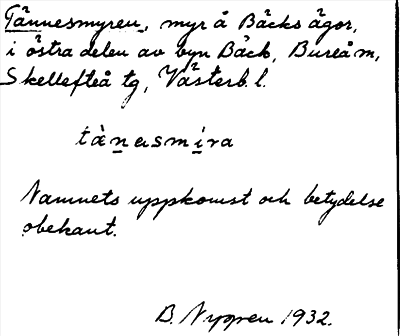 Tännesmyren, myr å Bäcks ägor,
i östra delen av byn Bäck, Bureå m,
Skellefteå tg, Västerb. l.
tànasmira
Namnets uppkomst och betydelse
obekant.
B. Nygren 1932.